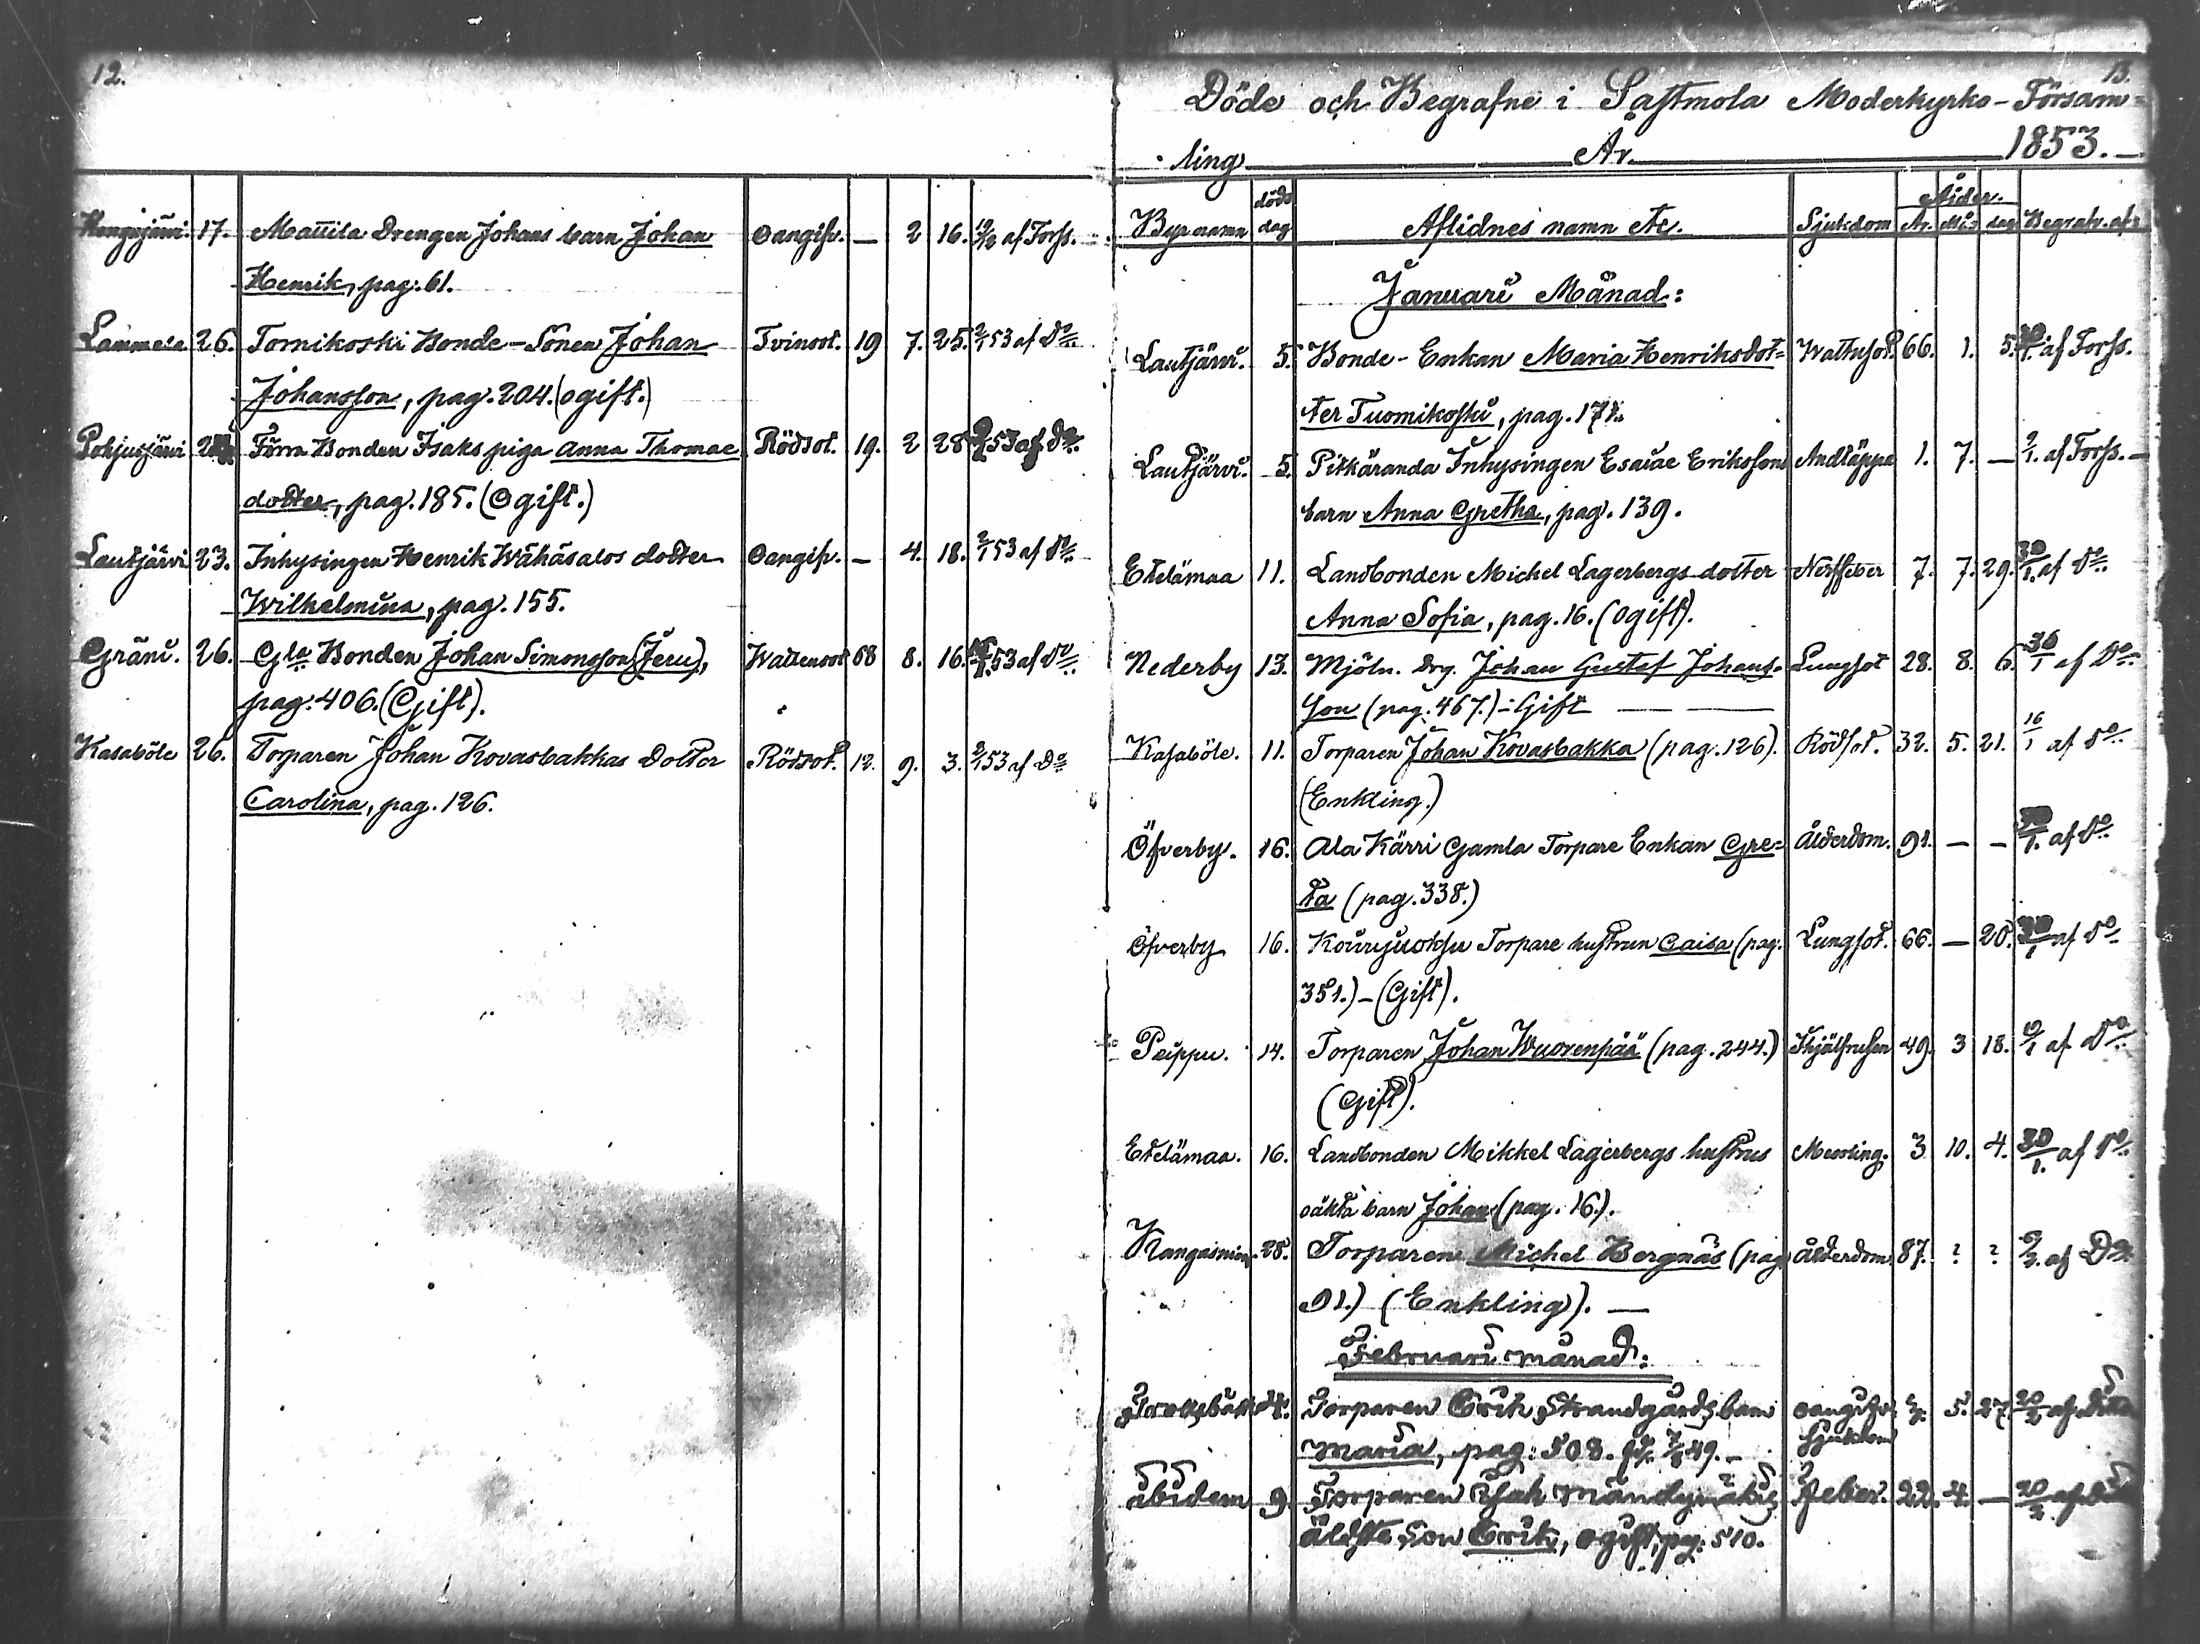 12.
17. Mattila Drengen Johans barn Johan Oangifv. — 2 16. af Forss.
Henrik, pag. 61.
26. Tornikoski Bonde-Sonen Johan Tvinsot. 19 7. 25. 2/1 53 af Do
Johansson, pag. 204. (ogift.)
Pohjusjärvi Förra Bonden Isaks piga Anna Thomae Rödsot. 19. 2 28 53 af Do
dotter, pag. 185. (Ogift.)
Lautjärvi 23. Inhysingen Henrik Wähäsalos dotter Oangifv. — 4. 18. 2/1 53 af Do
Wilhelmina, pag. 155.
Gräni. 26. Gla Bonden Johan Simonsson (Jeru), Wattensot 68 8. 16. 53 af Do
pag. 406. (Gift).
Kasaböle 26. Torparen Johan Kovasbakkas Dotter Rödsot. 12. 9. 3. 2/1 53 af Do
Carolina, pag. 126.
13.
Döde och Begrafne i Sastmola Moderkyrko-Försam-
ling År 1853.
Ålder.
Byanamn döds dag Aflidnes namn etc. Sjukdom År. Mån. dag Begrafv. af
Januari Månad:
Lautjärvi. 5. Bonde-Enkan Maria Henriksdot- Wattusot. 66. 1. 5. 30/1. af Forss.
ter Tuomikoski, pag.
Lautjärvi. 5. Pitkäranda Inhysingen Esaiae Erikssons Andtäppa 1. 7. — 9/1. af Forss.
barn Anna Gretha, pag. 139.
Etelämaa 11. Landbonden Michel Lagerbergs dotter Nerffeber 7. 7. 29. 30/1. af Do
Anna Sofia, pag. 16. (Ogift).
Nederby 13. Mjöln. Drg. Johan Gustaf Johans- Lungsot 28. 8. 6. 30/1 af Do
son (pag. 467.) - Gift
Kasaböle. 11. Torparen Johan Kovasbakka (pag. 126). Rödsot. 32. 5. 21. 16/1 af Do
(Enkling.)
Öfverby. 16. Ala Kärri Gamla Torpare Enkan Gre- Ålderdom. 91. — — 30/1. af Do
ta (pag. 338.)
Öfverby 16. Torpare hustrun Caisa (pag. Lungsot. 66. — 20. 30/1 af Do
351.) - (Gift).
Peippu. 14. Torparen Johan Wuorenpää (pag. 244.) 49. 3 18. af Do
(Gift).
Etelämaa. 16. Landbonden Mikkel Lagerbergs hustrus Messling. 3 10. 4. 30/1. af Do
oäkta barn Johan (pag. 16.).
28. Torparen Michel Bergnäs (pag Ålderdom 87. ? ? af Do
91.) (Enkling). —
Februari månad:
Torparen Erik Strandgårds barn oangifv. 5. 27 20/2 af
Maria, pag: 508. 49. sjukdom
ibidem 9 Torparen Isak äldste son Erik, ogift, pag: 510. Feber. 22. 4. — 20/2 af